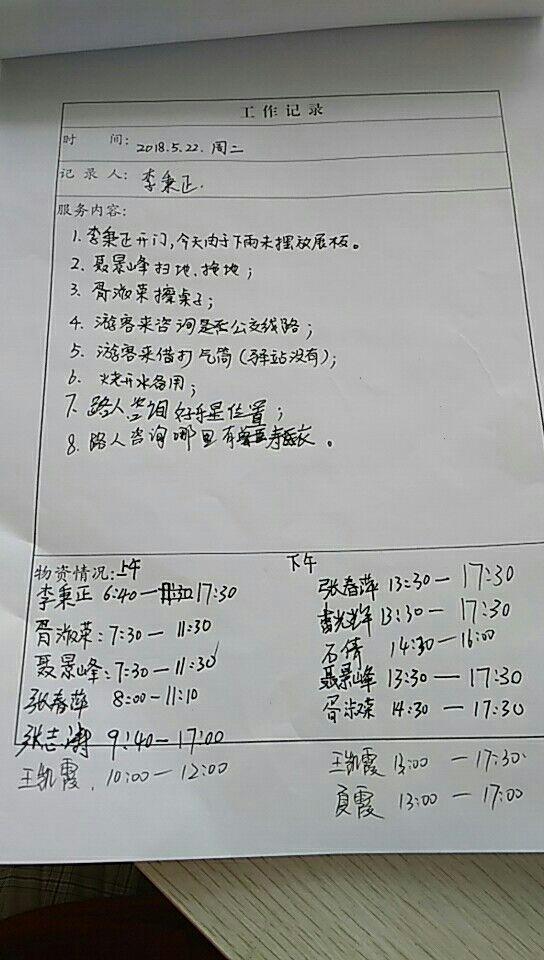 工作记录
时 间: 2018.5.22. 周二
记录人: 李秉正.
服务内容:
1. 李秉正开门,今天由于下雨未摆放展板。
2. 聂景峰扫地、拖地;
3. 胥淑荣擦桌子;
4. 游客来咨询是否公交线路;
5. 游客来借打气筒(驿站没有);
6. 烧开水备用;
7. 路人咨询好乐星位置;
8. 路人咨询哪里有卖寿衣。
物资情况:上午
李秉正 6:40—17:30
胥淑荣:7:30—11:30
聂景峰:7:30—11:30
张春萍 8:00—11:10
张志涛 9:40—17:00
王凯霞. 10:00—12:00
下午
张春萍 13:30—17:30
13:30—17:30
石倩 14:30—16:00
聂景峰 13:30—17:30
胥淑荣 14:30—17:30
王凯霞 13:00—17:30
夏霞 13:00—17:00